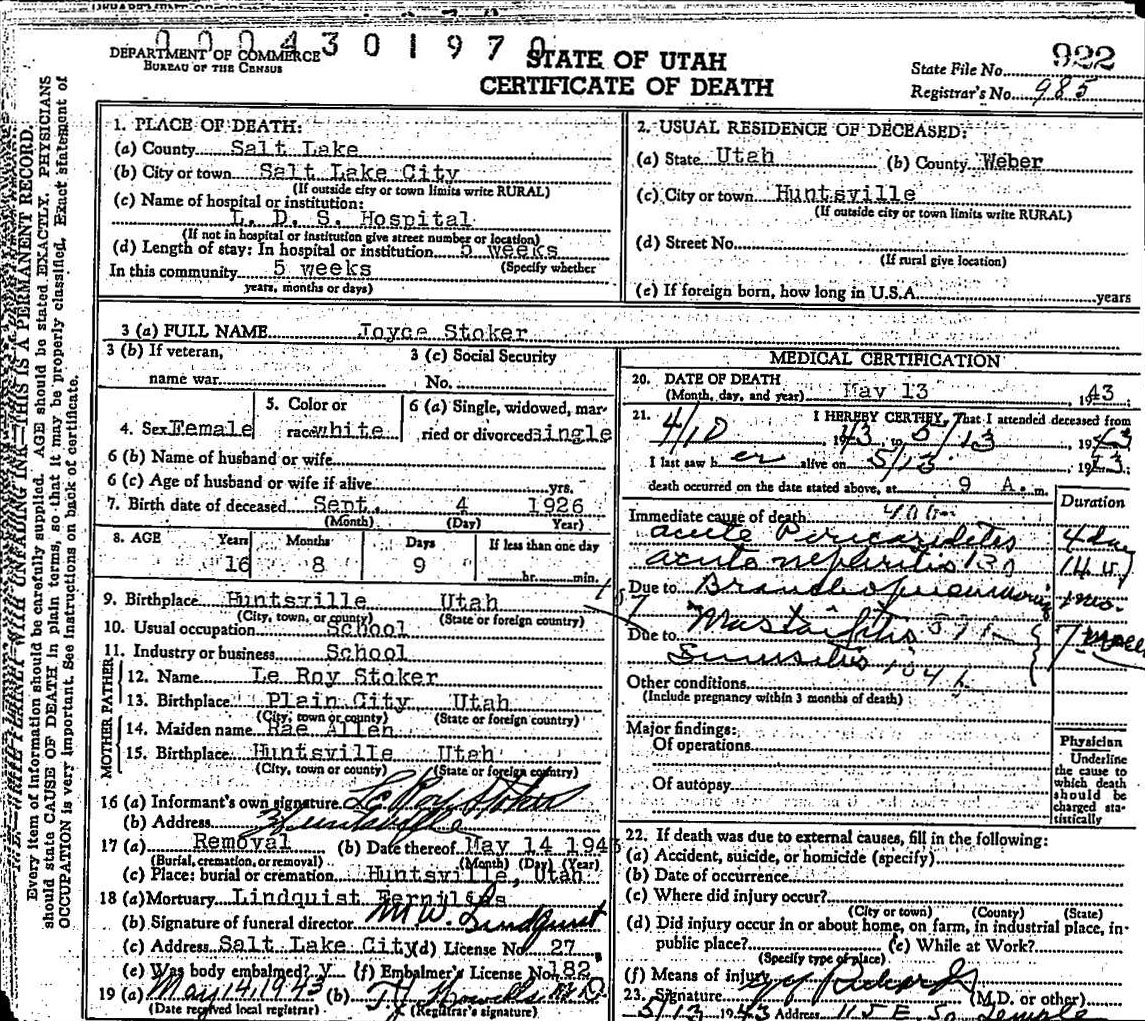 0004301970
DEPARTMENT OF COMMERCE
BUREAU OF THE CENSUS
STATE OF UTAH
CERTIFICATE OF DEATH
922
State File No.
Registrar's No. 985
Every item of information should be carefully supplied. AGE should be stated EXACTLY. PHYSICIANS
should state CAUSE OF DEATH in plain terms, so that it may be properly classified. Exact statement of
OCCUPATION is very important. See instructions on back of certificate.
WITH UNFADING INK—THIS IS A PERMANENT RECORD.
1. PLACE OF DEATH:
(a) County Salt Lake
(b) City or town Salt Lake City
(If outside city or town limits write RURAL)
(c) Name of hospital or institution:
L. D. S. Hospital
(If not in hospital or institution give street number or location)
(d) Length of stay: In hospital or institution 5 weeks
(Specify whether
In this community 5 weeks
years, months or days)
2. USUAL RESIDENCE OF DECEASED:
(a) State Utah (b) County Weber
(c) City or town Huntsville
(If outside city or town limits write RURAL)
(d) Street No.
(If rural give location)
(e) If foreign born, how long in U.S.A. years
3 (a) FULL NAME Joyce Stoker
3 (b) If veteran,
name war
3 (c) Social Security
No.
4. Sex Female
5. Color or
race white
6 (a) Single, widowed, mar-
ried or divorced single
6 (b) Name of husband or wife
6 (c) Age of husband or wife if alive yrs.
7. Birth date of deceased Sept. 4 1926
(Month) (Day) (Year)
8. AGE Years Months Days If less than one day
16 8 9 hr. min.
9. Birthplace Huntsville Utah
(City, town, or county) (State or foreign country)
10. Usual occupation School
11. Industry or business School
FATHER
12. Name Le Roy Stoker
13. Birthplace Plain City Utah
(City, town or county) (State or foreign country)
MOTHER
14. Maiden name Rae Allen
15. Birthplace Huntsville Utah
(City, town or county) (State or foreign country)
16 (a) Informant's own signature Le Roy Stoker
(b) Address Huntsville
17 (a) Removal (b) Date thereof May 14 1943
(Burial, cremation, or removal) (Month) (Day) (Year)
(c) Place: burial or cremation Huntsville, Utah
18 (a) Mortuary Lindquist
(b) Signature of funeral director M.W. Lindquist
(c) Address Salt Lake City (d) License No. 27
(e) Was body embalmed? y (f) Embalmer's License No. 182
19 (a) May 14, 1943 (b)
(Date received local registrar) (Registrar's signature)
MEDICAL CERTIFICATION
20. DATE OF DEATH
(Month, day, and year) May 13 1943
21. I HEREBY CERTIFY, That I attended deceased from
4/10 1943 to 5/13 1943
I last saw h er alive on 5/13 1943;
death occurred on the date stated above, at 9 A. m.
Duration
Immediate cause of death
acute Pericarditis 4 day
acute nephritis 130
Due to Bronchopneumonia 1 mo.
Due to Mastoiditis
Sinusitis 104
Other conditions
(Include pregnancy within 3 months of death)
Major findings:
Of operations
Of autopsy
Physician
Underline
the cause to
which death
should be
charged sta-
tistically
22. If death was due to external causes, fill in the following:
(a) Accident, suicide, or homicide (specify)
(b) Date of occurrence
(c) Where did injury occur?
(City or town) (County) (State)
(d) Did injury occur in or about home, on farm, in industrial place, in-
public place? (e) While at Work?
(Specify type of place)
(f) Means of injury
23. Signature (M.D. or other)
5/13 1943 Address 115 E. So. Temple